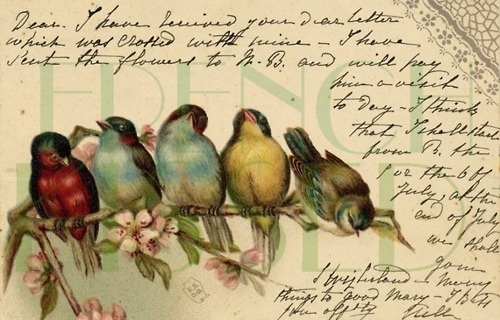 Dear. I have received your dear letter
which was crossed with mine – I have
sent the flowers to M. B. and will pay
him a visit
to day – I think
that I shall start
from B. the
5 or the 6 of
July, at the
end of July
we shall
Switzerland – Many
things to good Mary –
you off
FRENCH